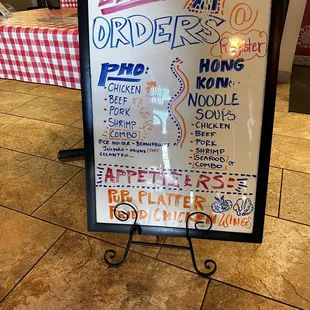 ORDERS @
Register
PHO:
CHICKEN
BEEF
PORK
SHRIMP
COMBO
RICE NOODLE - BEANSPROUT
Jalapeño - ONIONS
CILANTRO...
HONG
KONG
NOODLE
SOUPS
CHICKEN
BEEF
PORK
SHRIMP
SEAFOOD or
COMBO
APPETIZERS:
PUPU PLATTER
FRIED CHICKEN WINGS